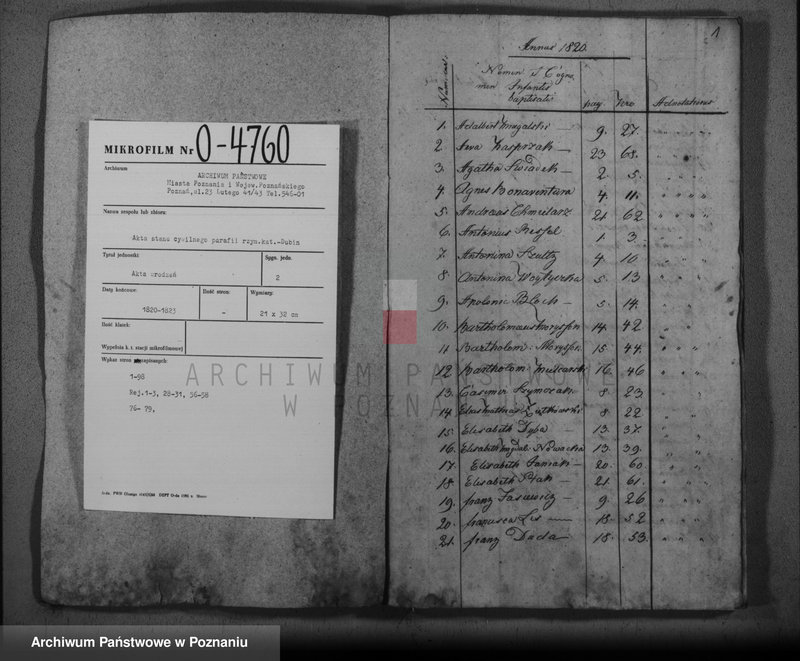 MIKROFILM Nr O-4760
Archiwum
ARCHIWUM PAŃSTWOWE
Miasta Poznania i Wojew.Poznańskiego
Poznań,ul.23 Lutego 41/43 Tel.546-01
Nazwa zespołu lub zbioru
Akta stanu cywilnego parafii rzym.kat.-Dubin
Tytuł jednostki
Sygn. jedn.
Akta urodzeń
2
Daty końcowe:
Ilość stron:
Wymiary:
1820-1823
-
21 x 32 cm
Ilość klatek:
Wypełnia k. t. stacji mikrofilmowej
Wykaz stron zapisanych:
1-98
Rej.1-3, 28-31, 56-58
76- 79,
1
Annus 1820.
Nomen et Cogno
men Infantis
baptisatis
pag
Nro
Adnotationes
1. Adalbert 9. 27.
2. Ewa Kasprzak 23 68.
3. Agatha 2. 5.
4. Agnes Bonaventura 4. 11.
5. Andreas Chmielarz 21. 62
6. Antonius 1. 3.
7. Antonina Szultz 4 10
8. Antonina 5. 13
9. Apolonia Bloch 5. 14.
10. Bartholomaus 14. 42.
11. Bartholom. 15. 44.
12. Bartholom 16. 46
13. Casimir Szymczak 8 23.
14. 8 22
15. Elisabeth Dyba 13. 37.
16. Elisabeth Nowacka 13. 39.
17. Elisabeth Janiak 20. 60.
18. Elisabeth Ptak 21. 61.
19. franz 9 26
20. francisca Lis 18. 52
21. franz Dada 18. 53.
ARCHIWUM PAŃSTWOWE
W POZNANIU
Archiwum Państwowe w Poznaniu